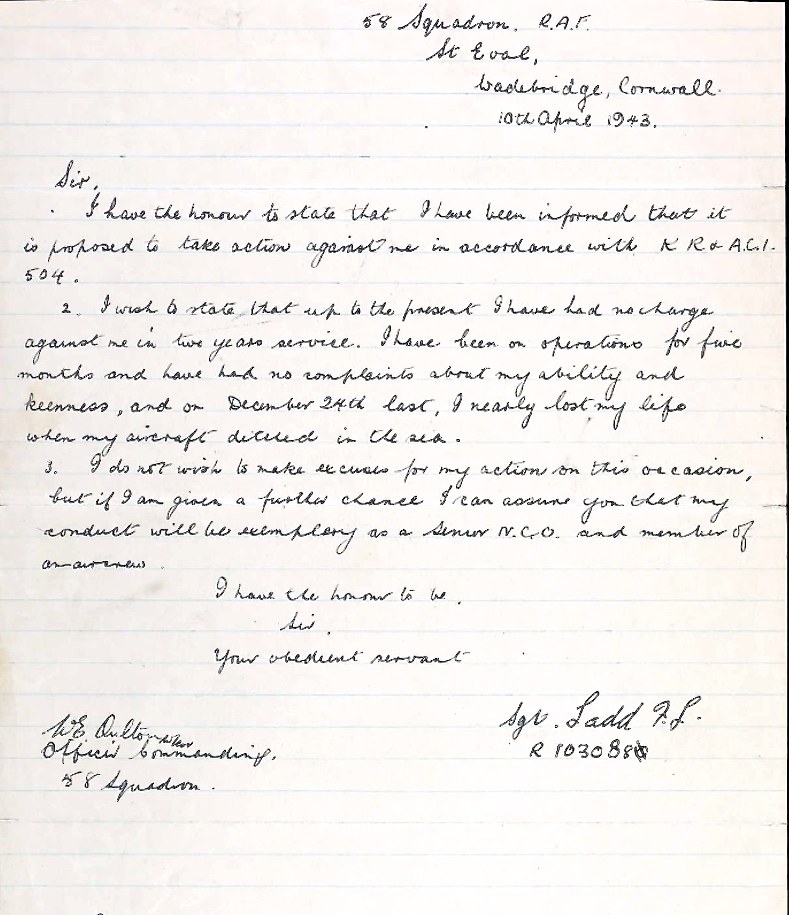 58 Squadron. R.A.F.
St Eval,
Wadebridge, Cornwall.
10th April 1943.
Sir,
I have the honour to state that I have been informed that it
is proposed to take action against me in accordance with K R & A.C.I.
504.
2. I wish to state that up to the present I have had no charge
against me in two years service. I have been on operations for five
months and have had no complaints about my ability and
keenness, and on December 24th last, I nearly lost my life
when my aircraft ditched in the sea.
3. I do not wish to make excuses for my action on this occasion,
but if I am given a further chance I can assure you that my
conduct will be exemplery as a Senior N.C.O. and member of
an aircrew.
I have the honour to be,
Sir,
Your obedient servant
Sgt. Ladd F.L.
R 103088
W.E. Oulton W/Cdr
Officer Commanding.
58 Squadron.